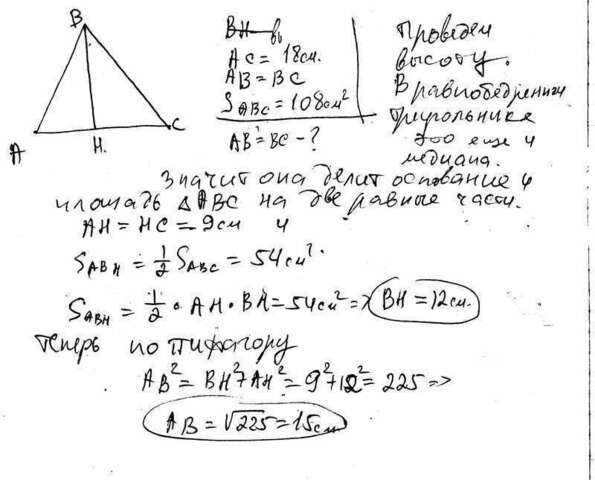 B
A
H.
C
BH вы
AC = 18см.
AB = BC
S ABC = 108см²
AB = BC - ?
Проведем
высоту.
В равнобедренном
треугольнике
это еще и
медиана.
Значит она делит основание и
площадь △ABC на две равные части.
AH = HC = 9см и
S ABH = 1/2 S ABC = 54см².
S ABH = 1/2 · AH · BH = 54см² => BH = 12см.
Теперь по Пифагору
AB² = BH² + AH² = 9² + 12² = 225 =>
AB = √225 = 15см